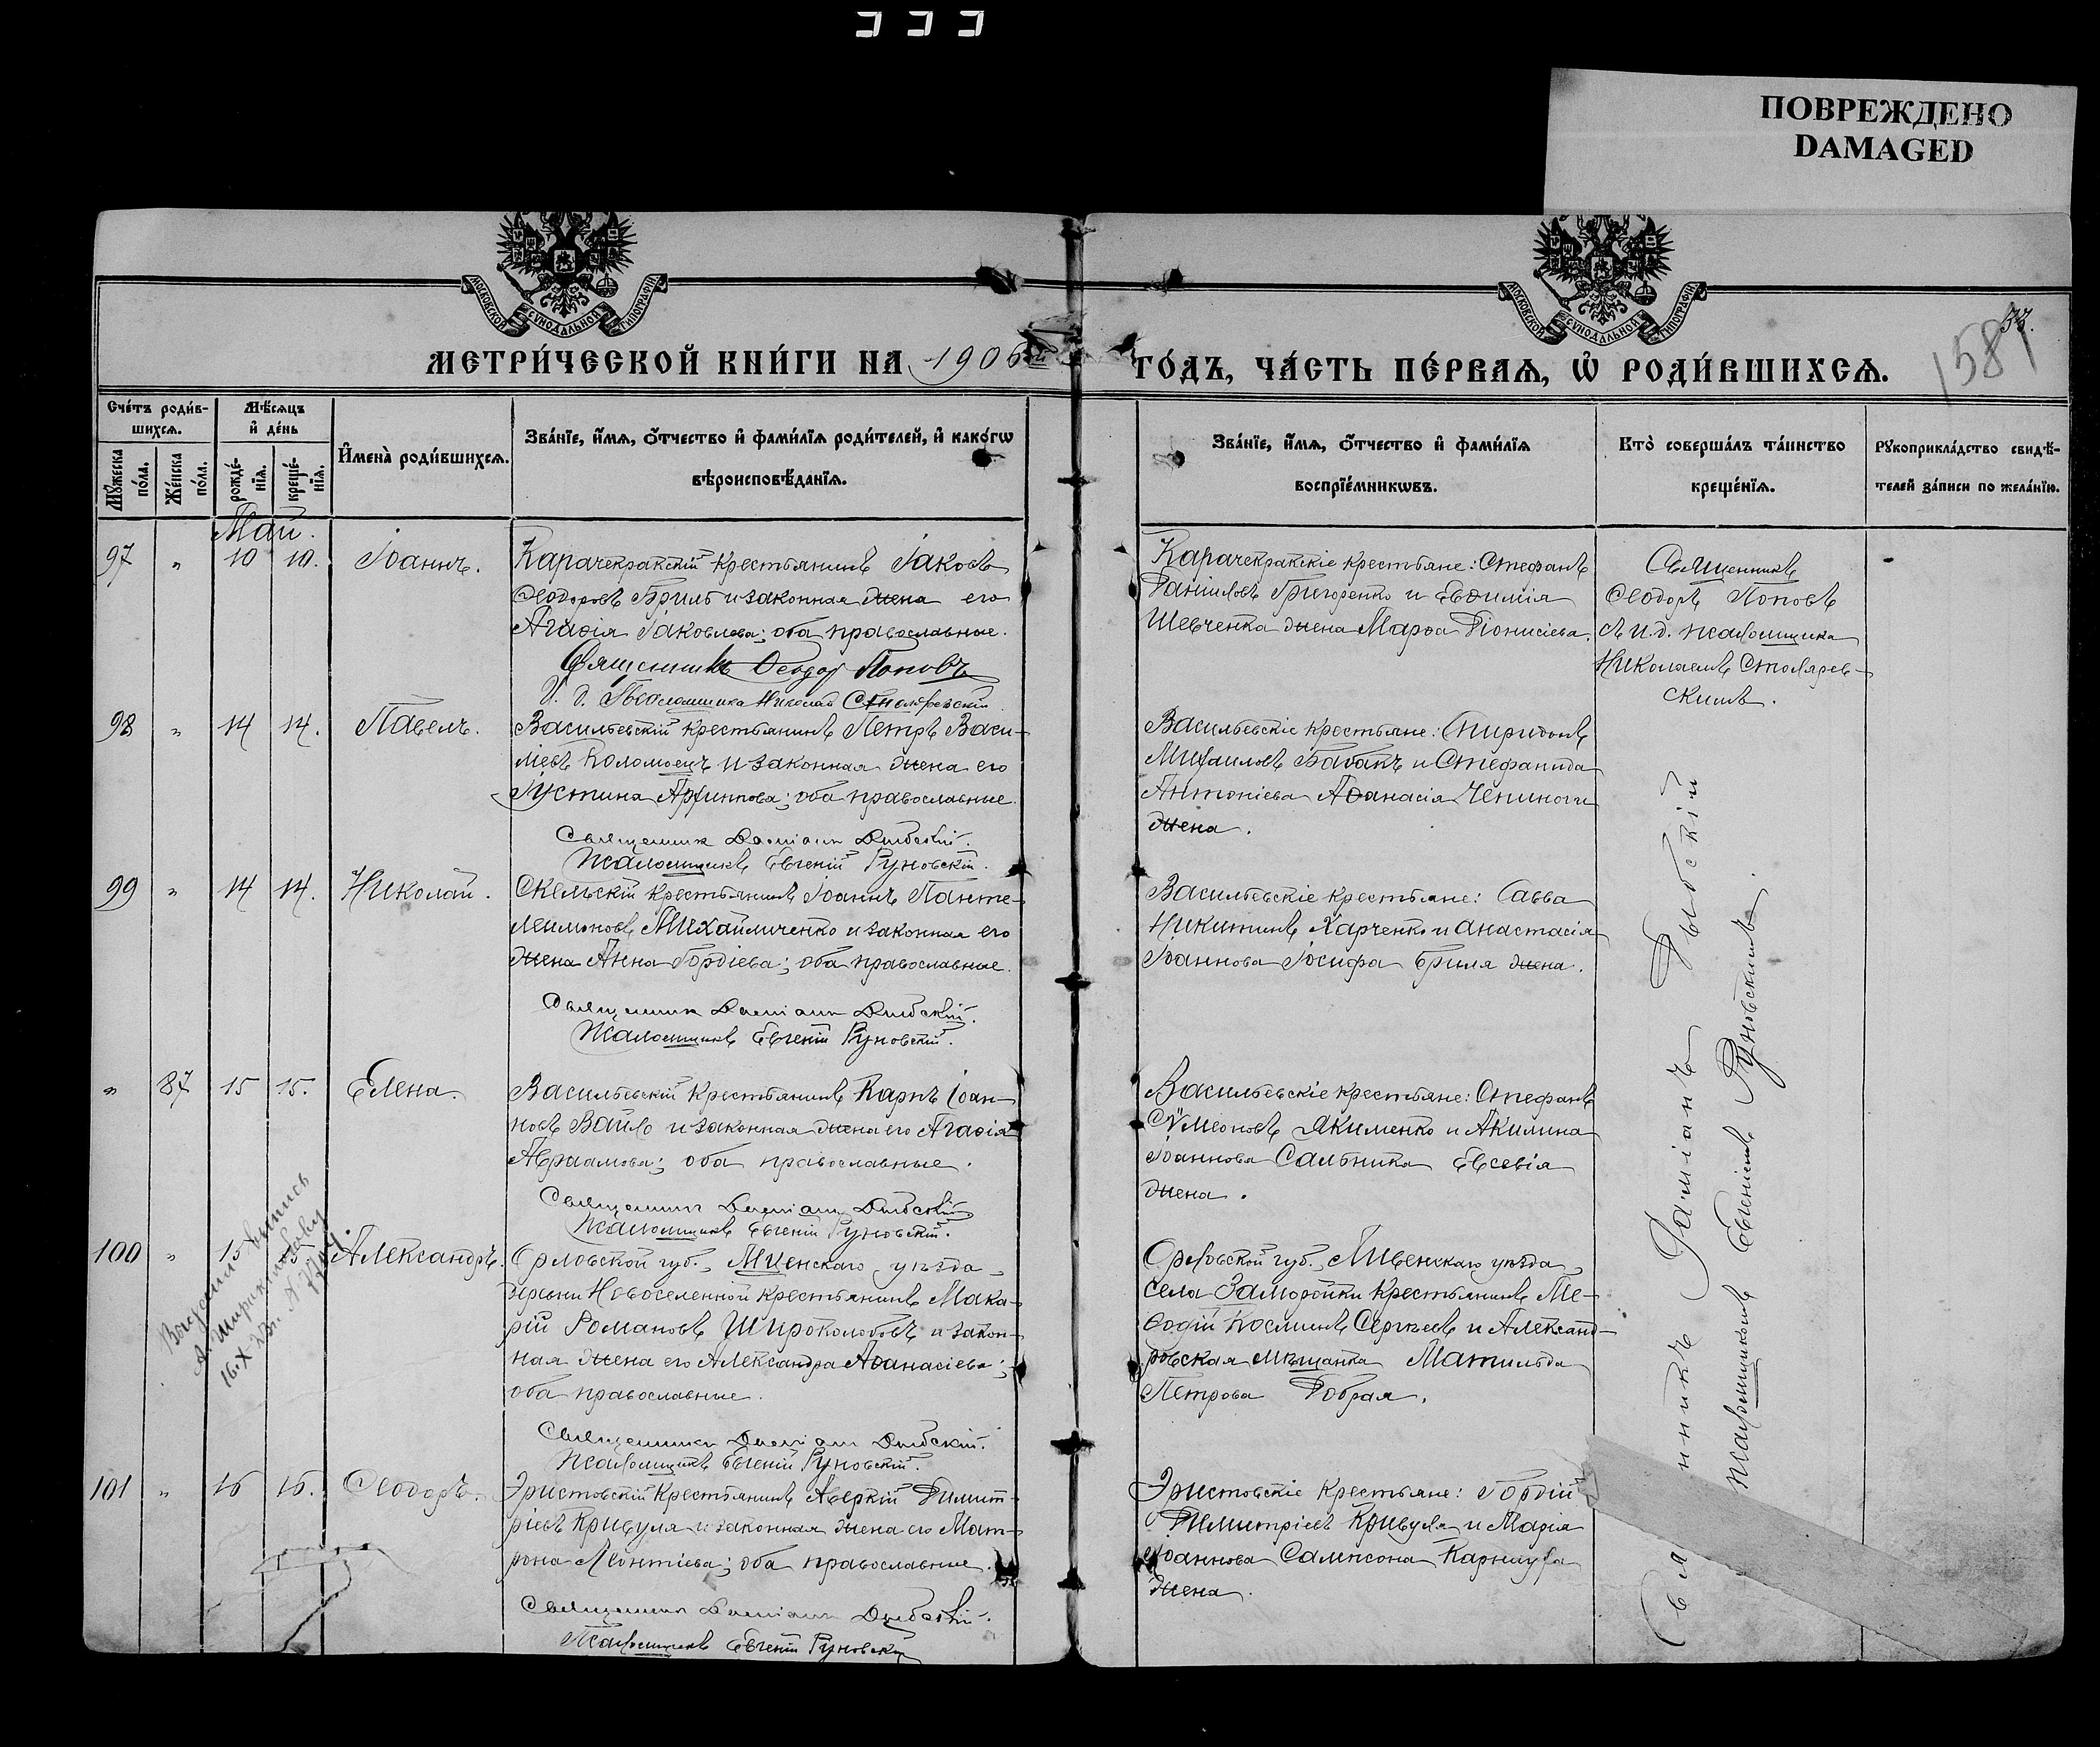 ПОВРЕЖДЕНО
DAMAGED
МОСКОВСКОЙ СѴНОДАЛЬНОЙ ТИПОГРАФІИ
МОСКОВСКОЙ СѴНОДАЛЬНОЙ ТИПОГРАФІИ
МЕТРИ́ЧЕСКОЙ КНИ́ГИ НА 1906й ГО́ДЪ, ЧА́СТЬ ПЕ́РВАѦ, Ѡ҆ РОДИ́ВШИХСѦ.
158
Сче́тъ роди́в-
шихсѧ.
Мꙋ́жеска по́ла.
Же́нска по́ла.
Мѣ́сѧцъ
и҆ де́нь
рожде́-нїѧ.
креще́-нїѧ.
И҆мена̀ роди́вшихсѧ.
Зва́нїе, и҆́мѧ, ѻ҆́тчество и҆ фами́лїѧ роди́телей, и҆ како́гѡ
вѣроисповѣ́данїѧ.
Зва́нїе, и҆́мѧ, ѻ҆́тчество и҆ фами́лїѧ
воспрїе́мникѡвъ.
Кто̀ соверша́лъ та́инство
креще́нїѧ.
Рꙋкоприкла́дство свидѣ́-
телей за́писи по жела́нїю.
Май.
97 " 10 10. Іоаннъ.
Карачекракскій крестьянинъ Іаковъ
Ѳеодоровъ Бриль и законная жена его
Агаѳія Іаковлева; оба православные.
Священникъ Ѳеодор Поповъ
И. д. Псаломщика Николай Столяревскій
Карачекракскіе крестьяне: Стефанъ
Даніиловъ Григоренко и Евѳимія
Шевченка жена Марѳа Діонисіева.
Священникъ
Ѳеодоръ Поповъ
съ и.д. псаломщика
Николаемъ Столярев-
скимъ.
98 " 14 14. Павелъ.
Васильевскій крестьянинъ Петръ Васи-
ліевъ Коломоецъ и законная жена его
Іустина Архиппова; оба православные.
Священник Дамиан Дыбскій.
Псаломщикъ Евгеній Руновскій.
Васильевскіе крестьяне: Спиридонъ
Михаиловъ Бабакъ и Стефанида
Антоніева Аѳанасія Чепиноги
жена.
99 " 14 14. Николай.
Скельскій крестьянинъ Іоаннъ Панте-
леимоновъ Михайличенко и законная его
жена Анна Гордіева; оба православные.
Священник Дамиан Дыбскій.
Псаломщикъ Евгеній Руновскій.
Васильевскіе крестьяне: Савва
Никитинъ Харченко и Анастасія
Іоаннова Іосифа Бриля жена.
" 87 15 15. Елена.
Васильевскій крестьянинъ Карпъ Іоан-
новъ Вайло и законная жена его Агаѳія
Авраамова; оба православные.
Священник Дамиан Дыбскій
Псаломщикъ Евгеній Руновскій.
Васильевскіе крестьяне: Стефанъ
Сѵмеоновъ Якименко и Акилина
Іоаннова Сальника Евсевія
жена.
100 " 15 Александръ.
Орловской губ., Мценскаго уѣзда,
дерьвни Новоселенной крестьянинъ Мака-
рій Романовъ Широколобовъ и закон-
ная жена его Александра Аѳанасіева;
оба православные.
Священник Дамиан Дыбскій.
Псаломщикъ Евгеній Руновскій.
Орловской губ., Ливенскаго уѣзда,
села Заморойки крестьянинъ Ме-
ѳодій Космынъ Сергѣевъ и Александ-
ровская мѣщанка Матильда
Петрова Добрая.
выпись
16.X 23г.
101 " 16 16. Ѳеодоръ.
Эристовскій крестьянинъ Аверкій Димит-
ріевъ Кривуля и законная жена его Мат-
рона Леонтіева; оба православные.
Священник Дамиан Дыбскій.
Псаломщикъ Евгеній Руновскій
Эристовскіе крестьяне: Гордій
Димитріевъ Кривуля и Марія
Іоаннова Сампсона Карнауха
жена.
Священникъ Даміанъ Дыбскій
псаломщикомъ Евгеніемъ Руновскимъ.